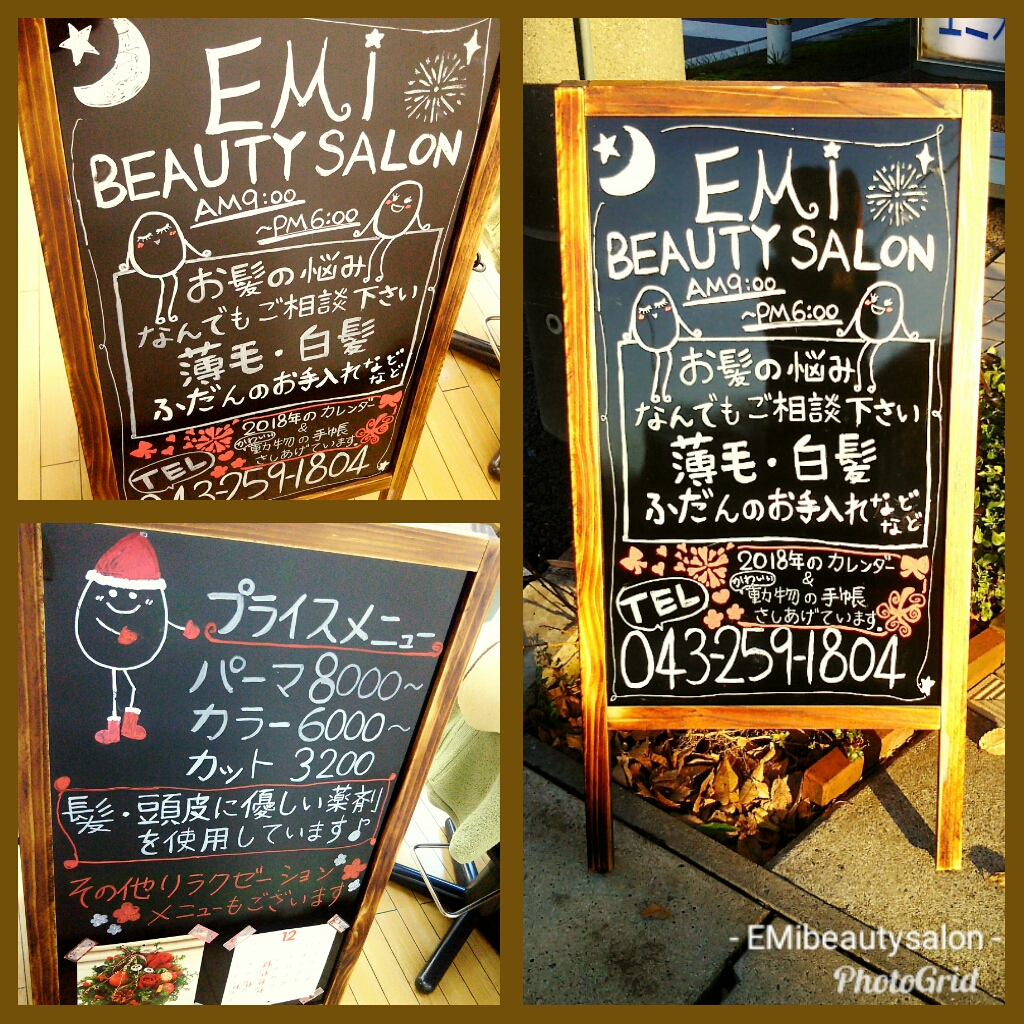 EMi
BEAUTY SALON
AM9:00
~PM6:00
お髪の悩み
なんでもご相談下さい
薄毛・白髪
ふだんのお手入れなどなど
2018年のカレンダー
&
かわいい動物の手帳
さしあげています。
TEL
043-259-1804
プライスメニュー
パーマ 8000~
カラー 6000~
カット 3200
髪・頭皮に優しい薬剤
を使用しています♪
その他リラクゼーション
メニューもございます
12
EMi
BEAUTY SALON
AM9:00
~PM6:00
お髪の悩み
なんでもご相談下さい
薄毛・白髪
ふだんのお手入れなどなど
2018年のカレンダー
&
かわいい動物の手帳
さしあげています。
TEL
043-259-1804
- EMibeautysalon -
PhotoGrid